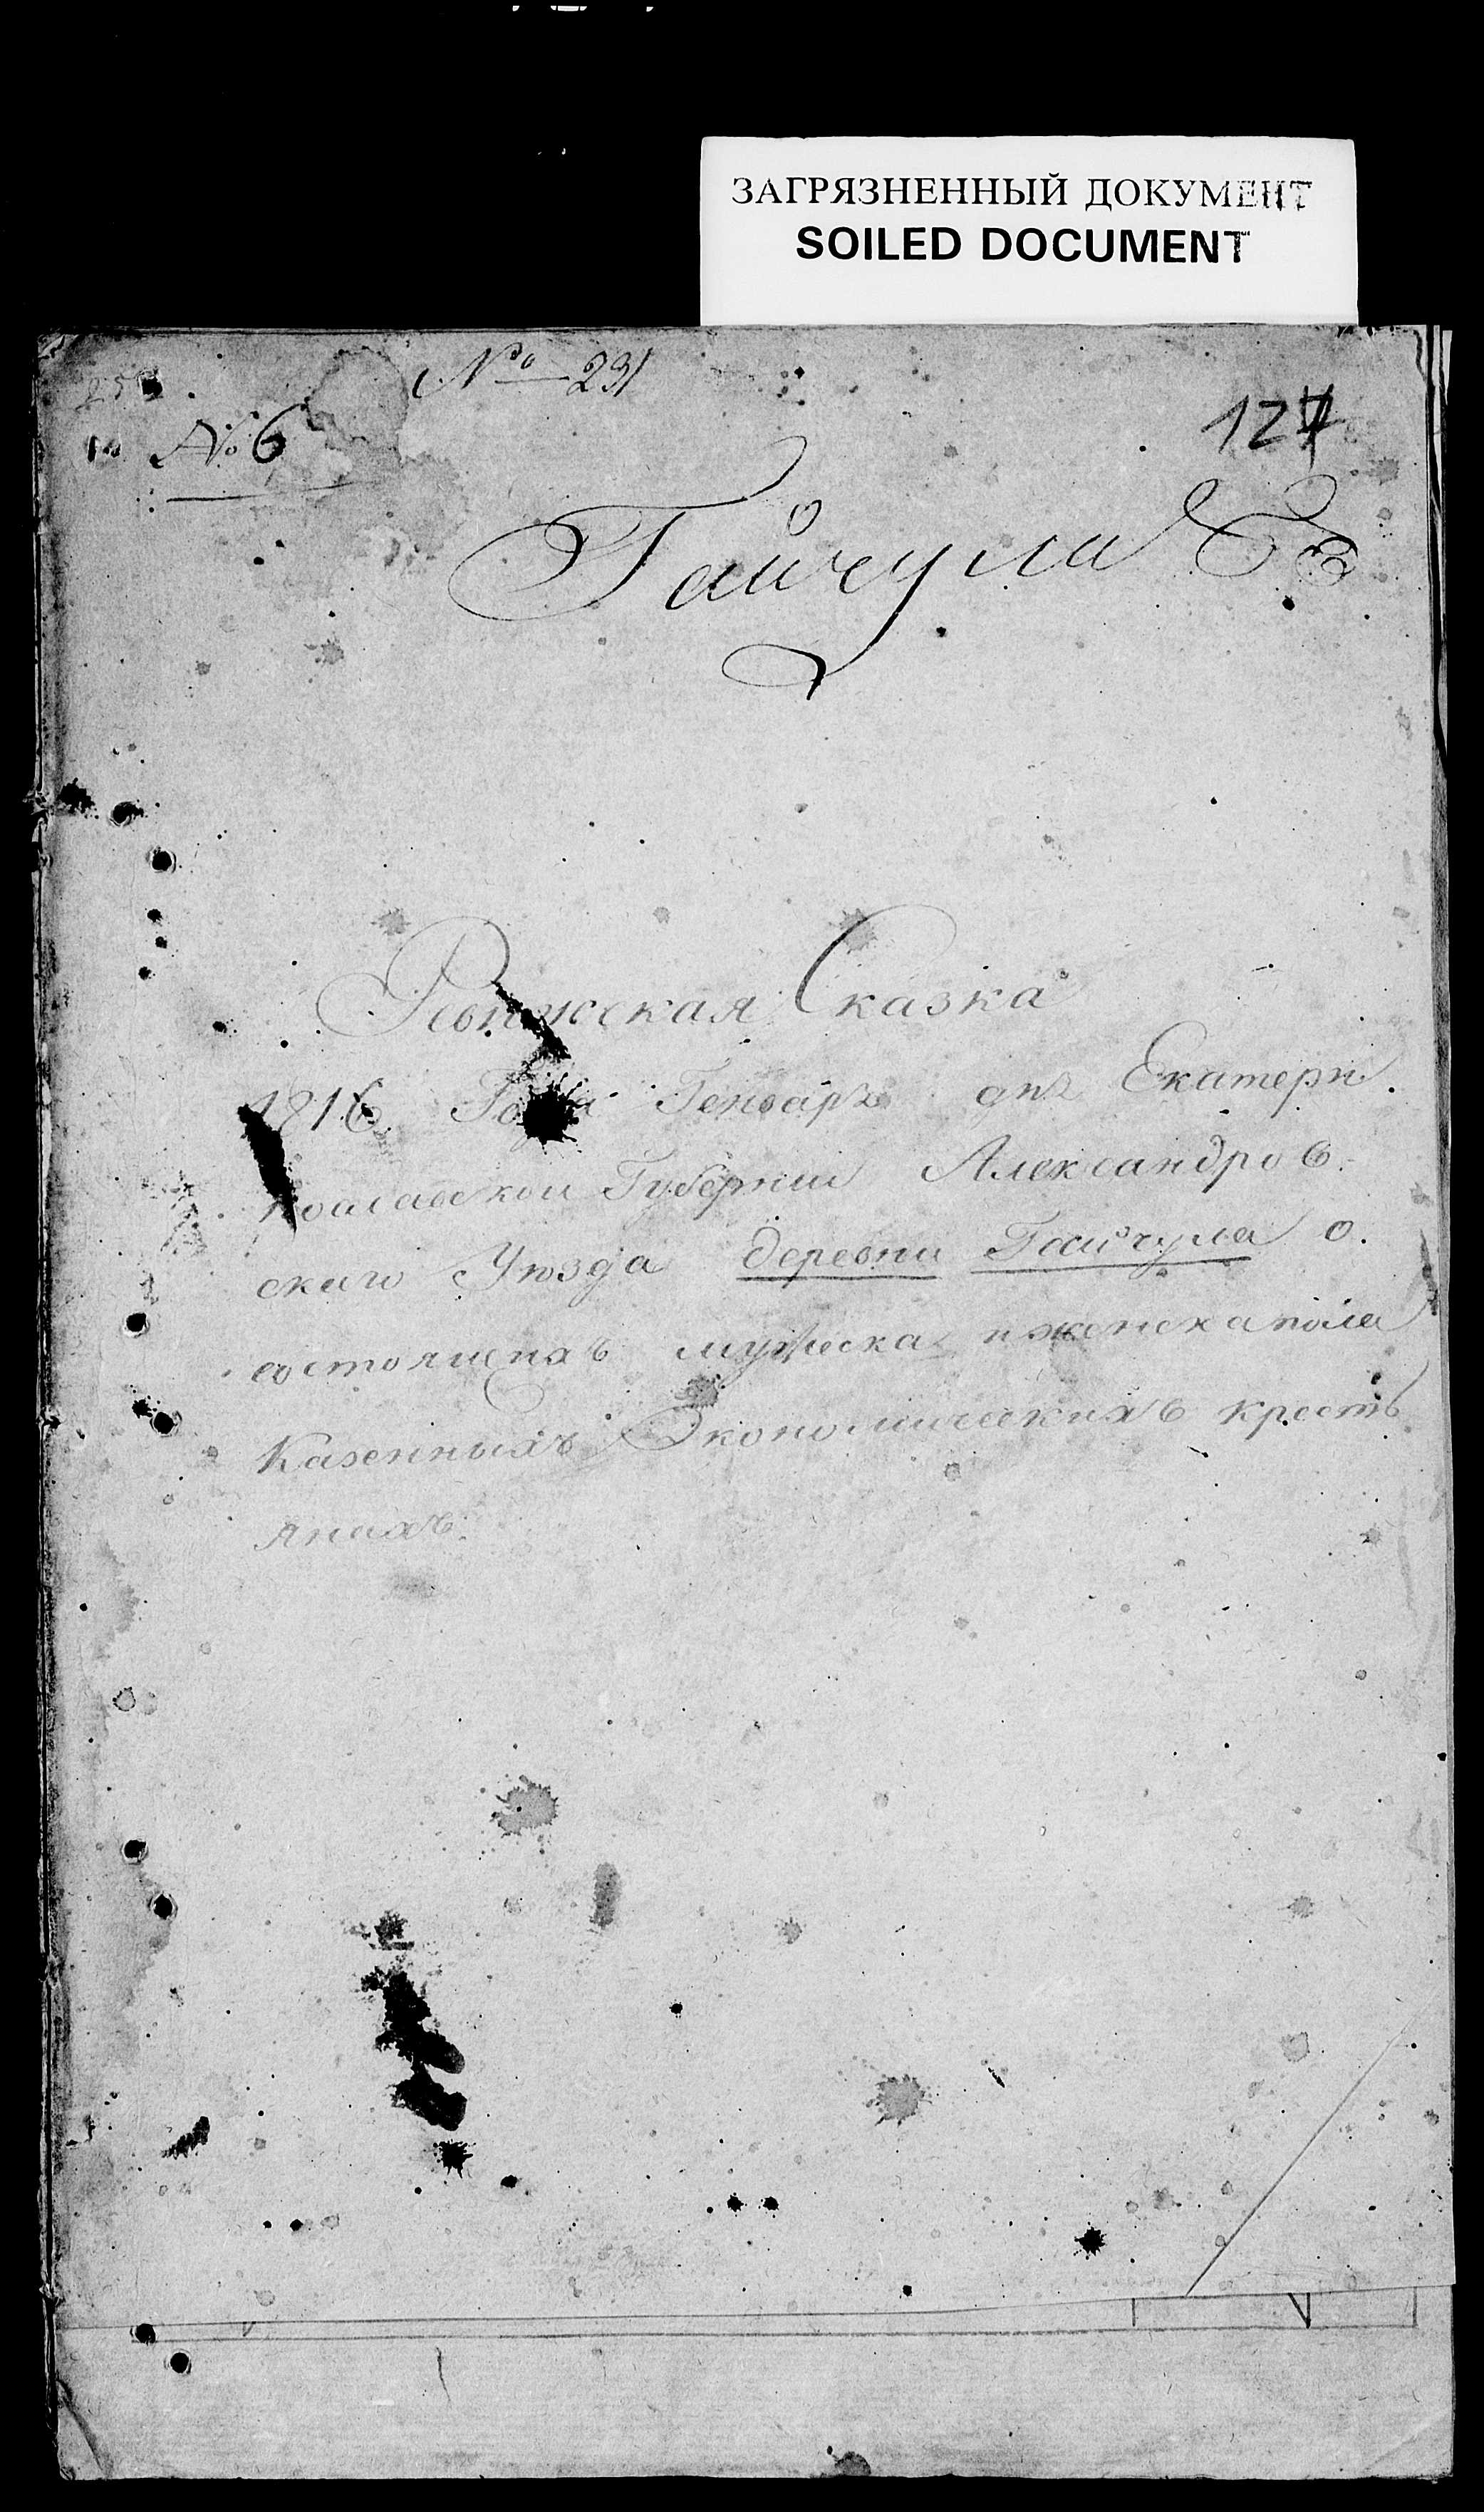 ЗАГРЯЗНЕННЫЙ ДОКУМЕНТ
SOILED DOCUMENT
№ 231
№ 6
127
Гайчула
Ревижская Сказка
1816 Года Генваря дня Екатерин.
нославской Губернии Александров.
скаго Уезда деревни Гайчула о.
состоящихъ мужеска и женска пола
Казенныхъ Экономическихъ кресть
янахъ.